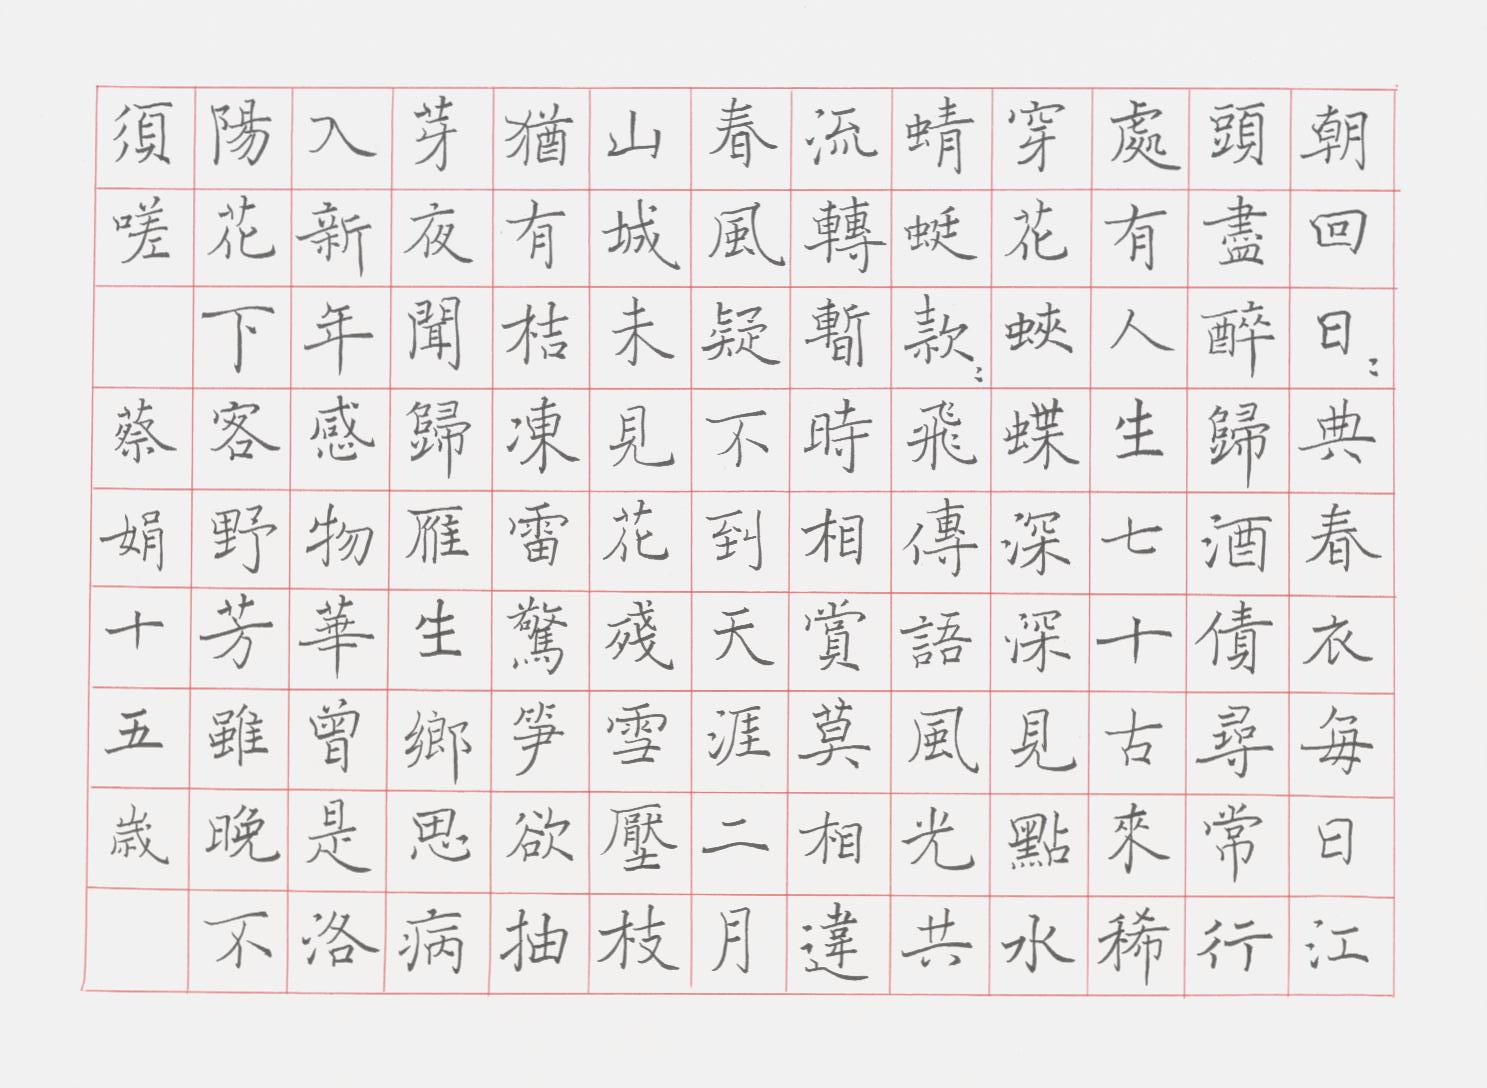 朝回日〻典春衣每日江
頭盡醉歸酒債尋常行
處有人生七十古來稀
穿花蛺蝶深深見點水
蜻蜓款〻飛傳語風光共
流轉暫時相賞莫相違
春風疑不到天涯二月
山城未見花殘雪壓枝
猶有桔凍雷驚筍欲抽
芽夜聞歸雁生鄉思病
入新年感物華曾是洛
陽花下客野芳雖晚不
須嗟
蔡娟十五歲